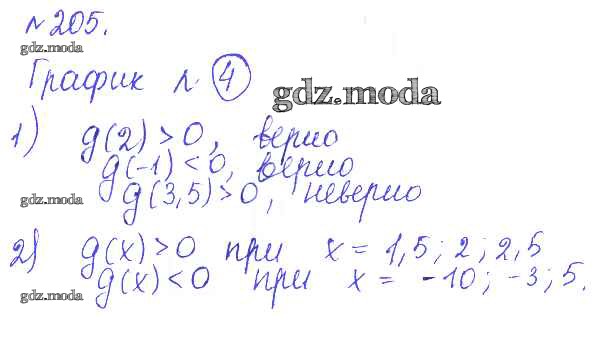 №205.
gdz.moda
График № 4
gdz.moda
1) g(2)>0, верно
g(-1)<0, верно
gdz.moda g(3,5)>0, неверно
2) g(x)>0 при x = 1,5; 2; 2,5
gdz.moda g(x)<0 при x = -10; -3; 5.